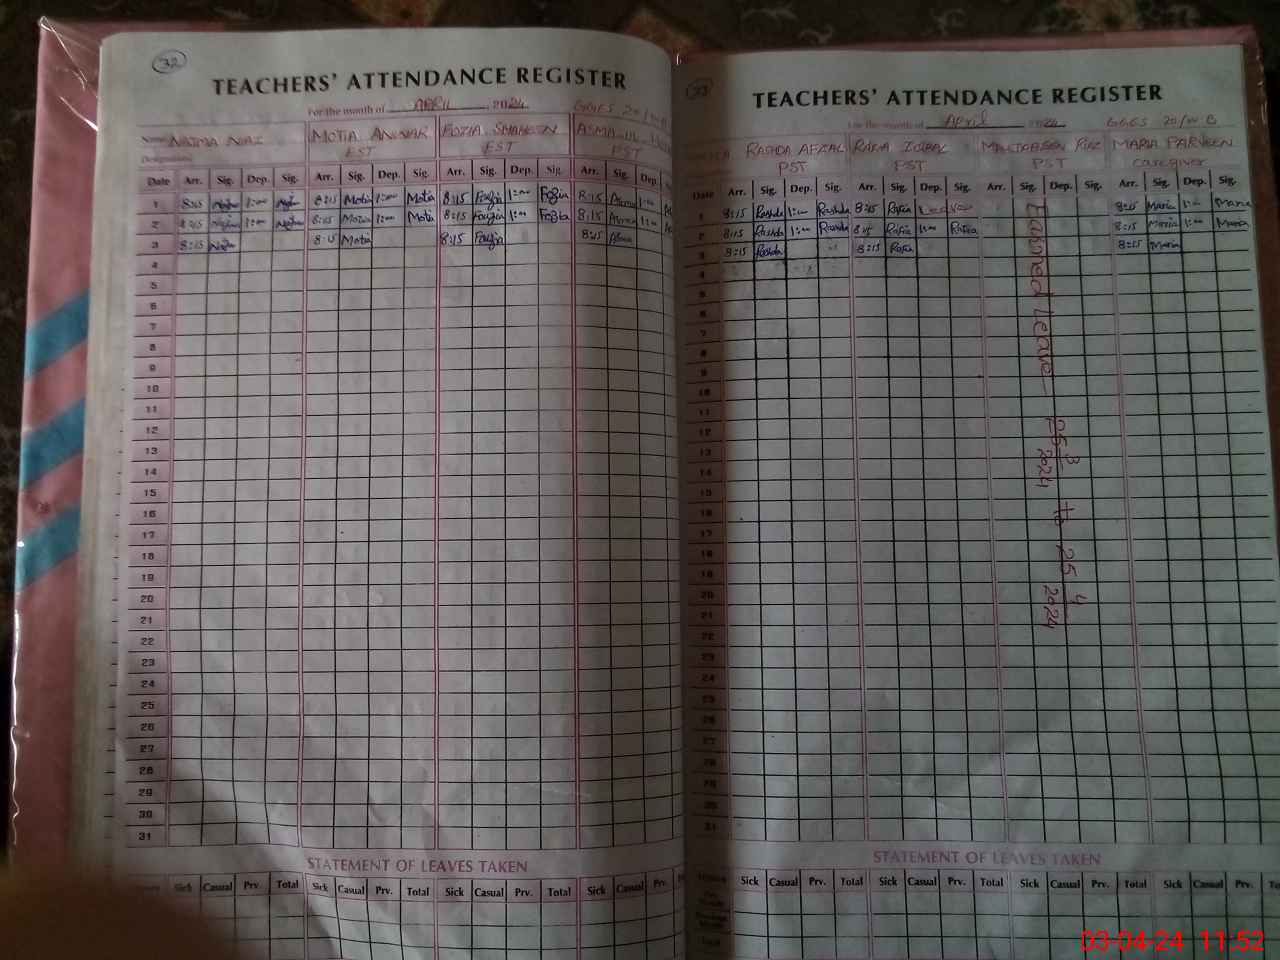 32
TEACHERS' ATTENDANCE REGISTER
For the month of APRIL 2024 GGES 20/W B
Name NAJMA NIAZ MOTIA ANWAR FOZIA SHAHEEN ASMA-UL
Designation EST EST PST
Date Arr. Sig. Dep. Sig. Arr. Sig. Dep. Sig. Arr. Sig. Dep. Sig. Arr. Sig. Dep.
1 8:15 Najma 1:00 Najma 8:15 Motia 1:00 Motia 8:15 Fouzia 1:00 Fozia 8:15 Asma 1:00
2 8:15 Najma 1:00 Najma 8:15 Motia 1:00 Motia 8:15 Fouzia 1:00 Fozia 8:15 Asma 1:00
3 8:15 Najma 8:15 Motia 8:15 Fouzia 8:15 Asma
4
5
6
7
8
9
10
11
12
13
14
15
16
17
18
19
20
21
22
23
24
25
26
27
28
29
30
31
STATEMENT OF LEAVES TAKEN
Sick Casual Prv. Total Sick Casual Prv. Total Sick Casual Prv. Total Sick Casual Prv.
33
TEACHERS' ATTENDANCE REGISTER
For the month of April 2024 GGES 20/W B
RASHDA AFZAL RAFIA IQBAL RIAZ MARIA PARVEEN
PST PST PST caregiver
Date Arr. Sig. Dep. Sig. Arr. Sig. Dep. Sig. Arr. Sig. Dep. Sig. Arr. Sig. Dep. Sig.
1 8:15 Rashda 1:00 Rashda 8:15 Rafia Leave 8:15 Maria 1:00 Maria
2 8:15 Rashda 1:00 Rashda 8:15 Rafia 1:00 Rafia 8:15 Maria 1:00 Maria
3 8:15 Rashda 8:15 Rafia 8:15 Maria
Earned Leave 25 3 2024 to 25 4 2024
4
5
6
7
8
9
10
11
12
13
14
15
16
17
18
19
20
21
22
23
24
25
26
27
28
29
30
31
STATEMENT OF LEAVES TAKEN
Sick Casual Prv. Total Sick Casual Prv. Total Sick Casual Prv. Total Sick Casual Prv.
Total
03-04-24 11:52